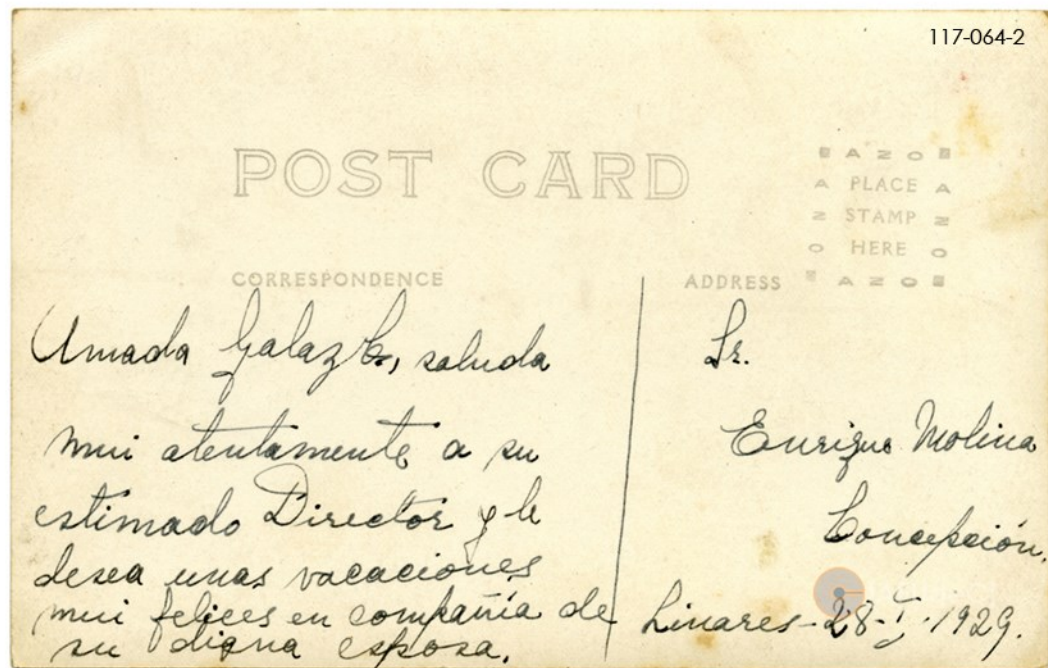 117-064-2
POST CARD
AZO
A PLACE A
Z STAMP Z
O HERE O
AZO
CORRESPONDENCE
ADDRESS
Amada Galaz B., saluda
mui atentamente a su
estimado Director y le
desea unas vacaciones
mui felices en compañía de
su digna esposa.
Sr.
Enrique Molina
Concepción.
Linares-28-I-1929.